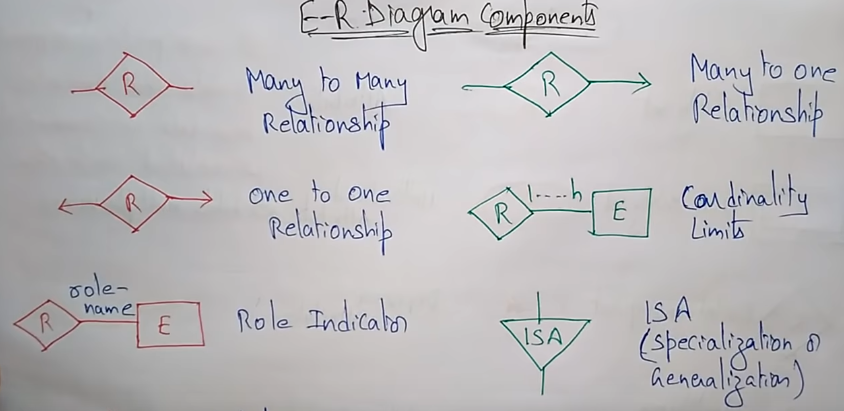 E-R Diagram Components
R
Many to Many
Relationship
R
Many to one
Relationship
R
one to one
Relationship
R
1----h
E
Cardinality
Limits
role-
name
R
E
Role Indicator
ISA
ISA
(Specialization or
Generalization)